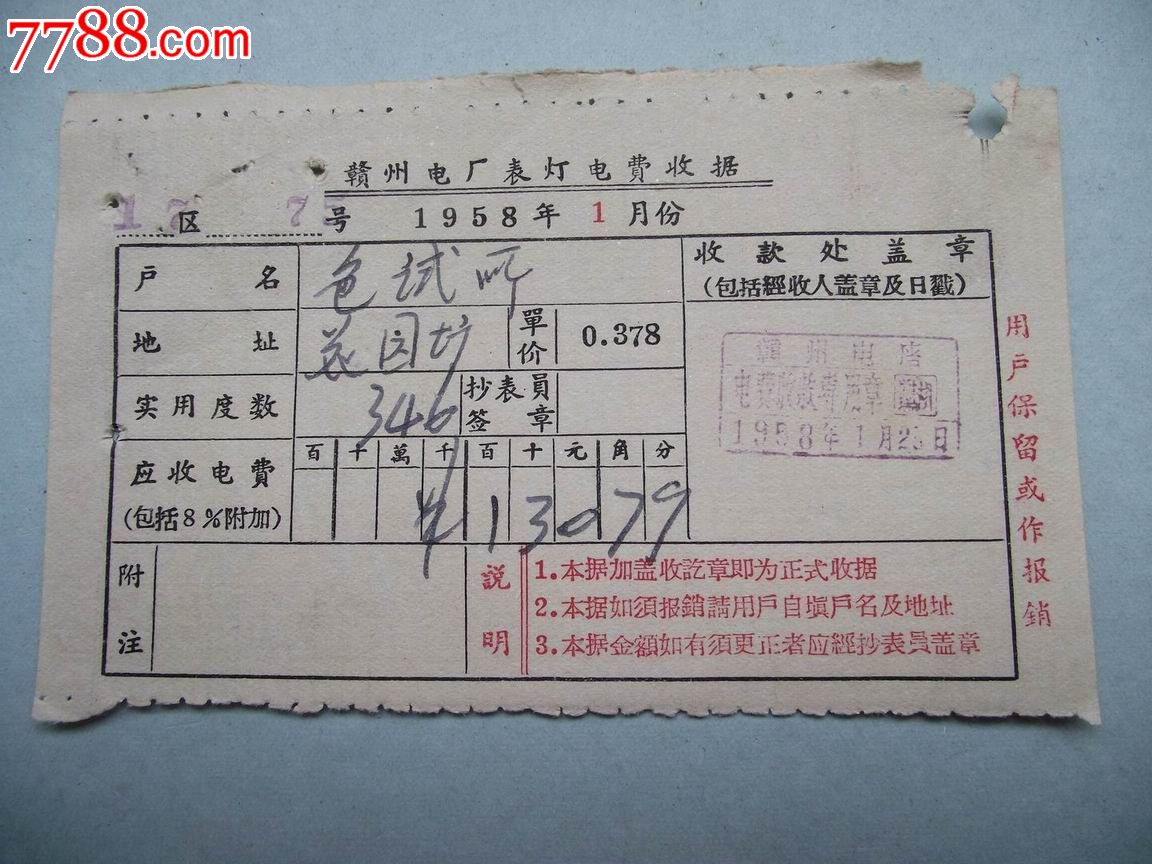 7788.com
贛州电厂表灯电費收据
17区 7 号 1958年 1 月份
户名 色试所
收款处盖章
(包括經收人盖章及日戳)
地址 园坊
單价 0.378
实用度数 346
抄表員签章
贛州电厂
电费收款专用章
1958年1月25日
应收电費
(包括8%附加)
百 千 萬 千 百 十 元 角 分
¥13079
附注
説明
1.本据加盖收訖章即为正式收据
2.本据如須报銷請用戶自塡戶名及地址
3.本据金額如有須更正者应經抄表員盖章
用戶保留或作报銷